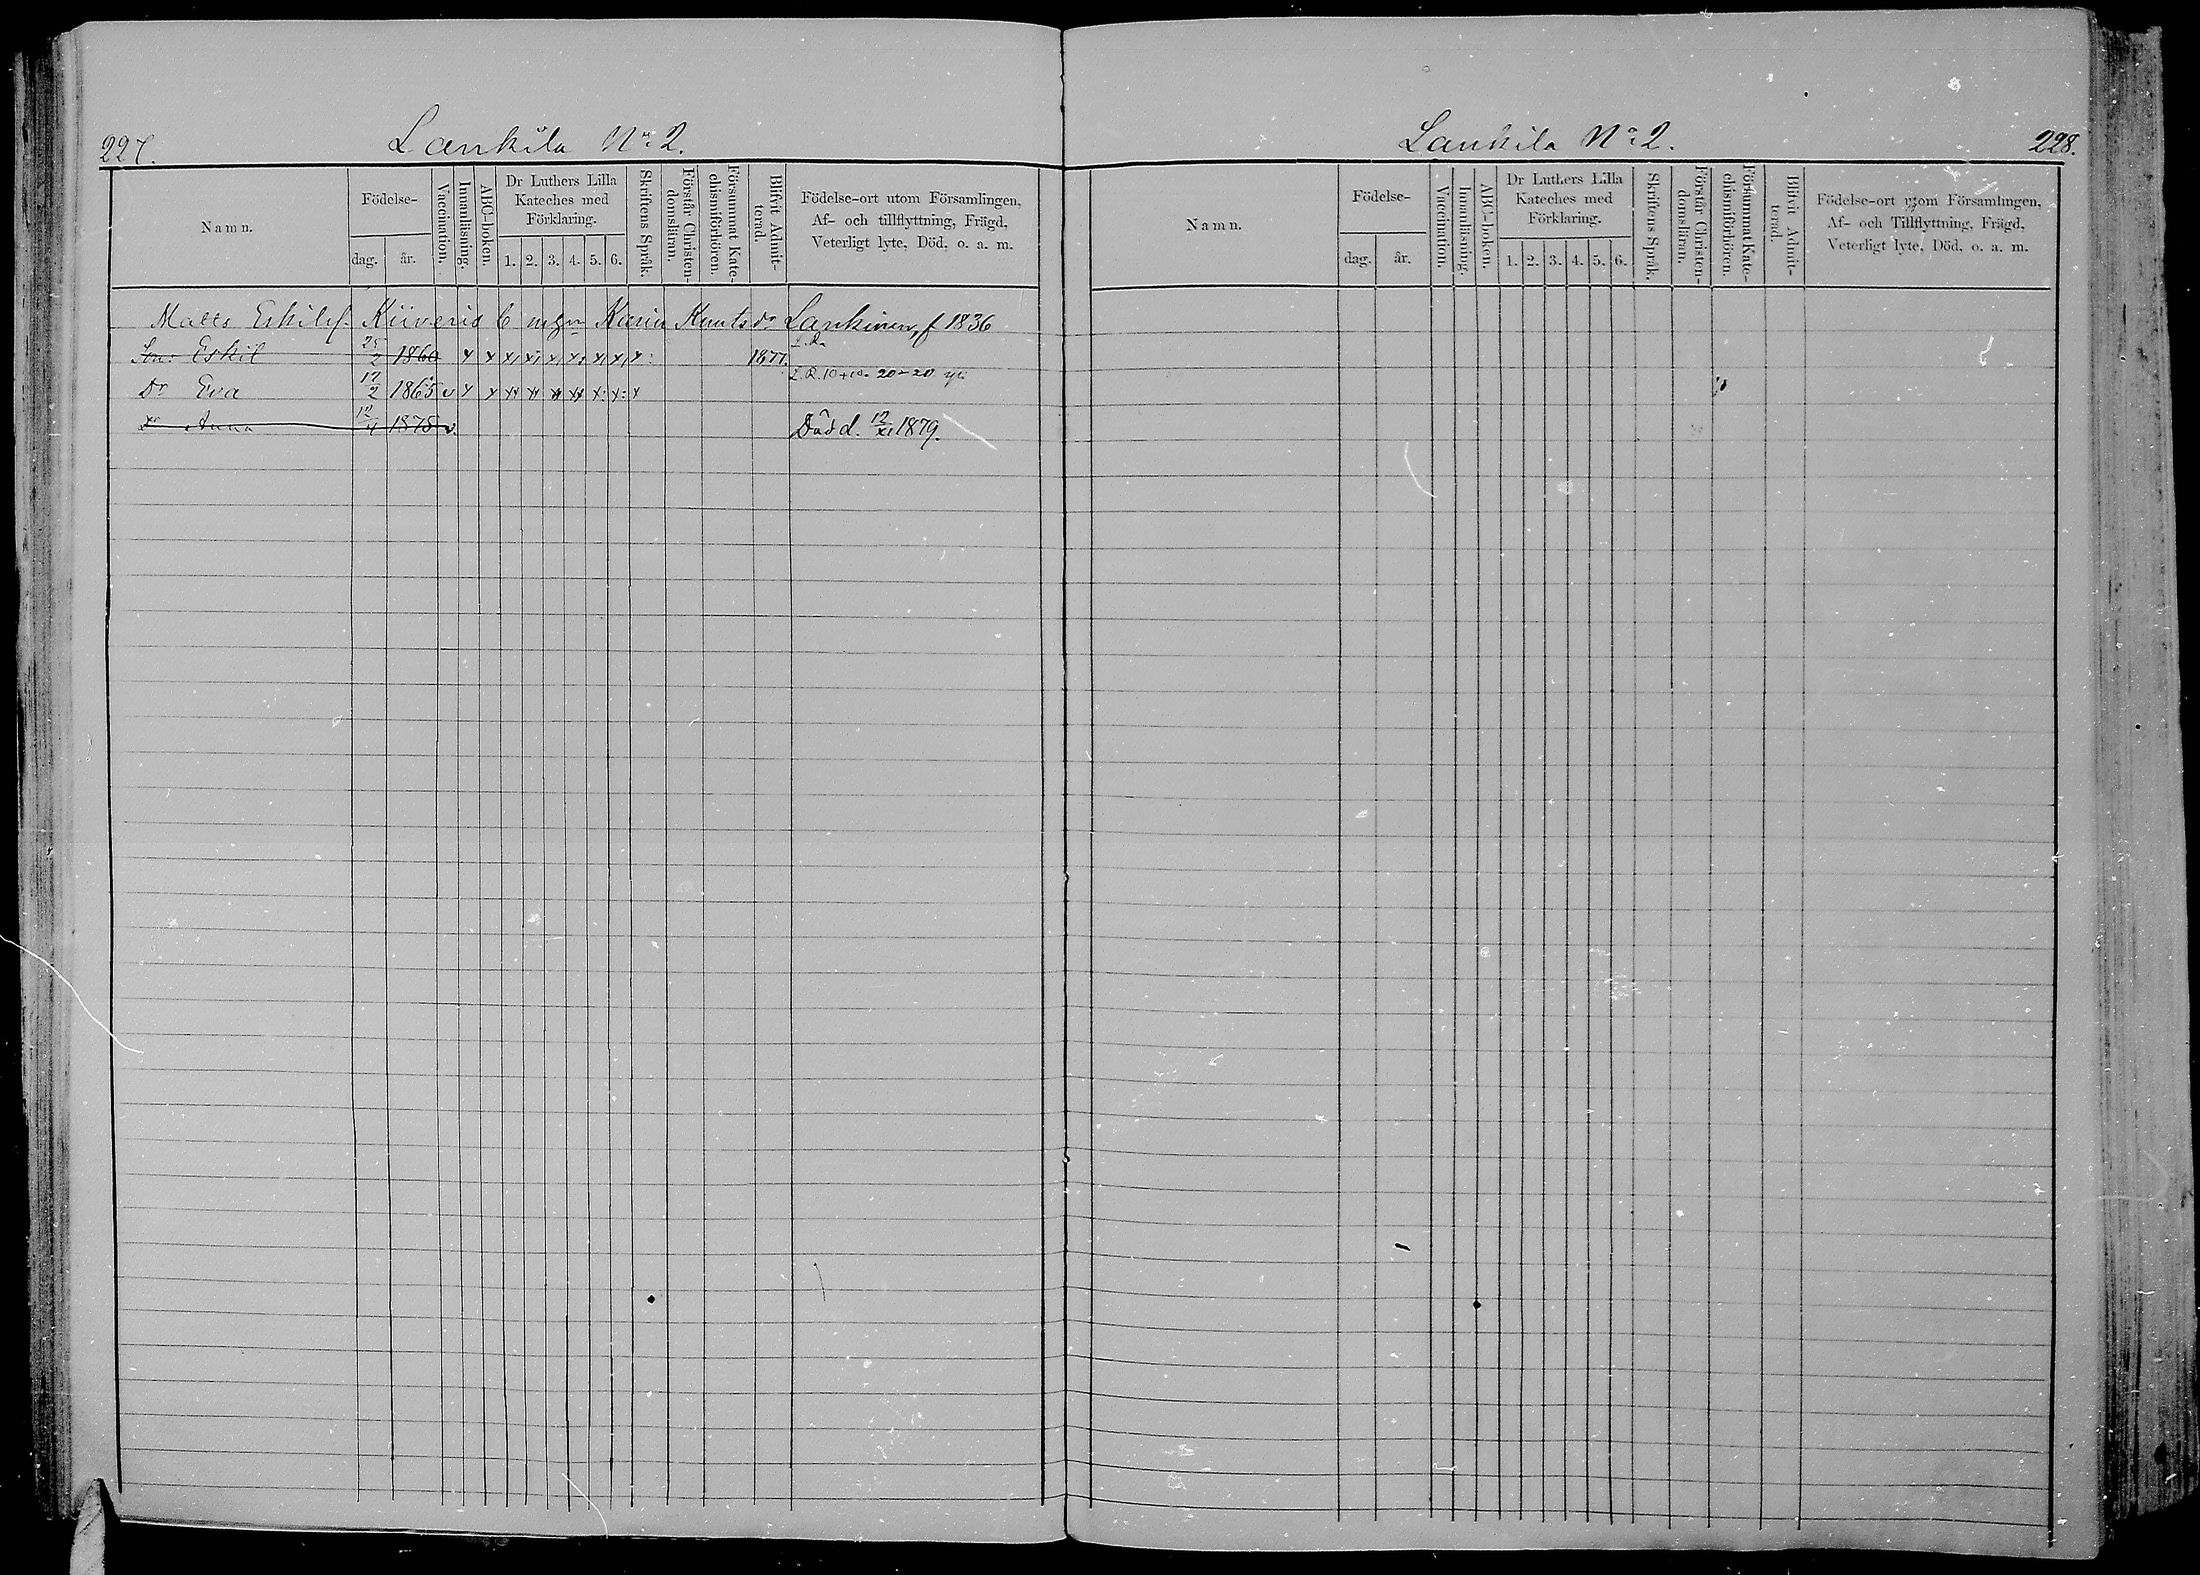 227.
Lankila No 2.
Namn.
Födelse-
dag.
år.
Vaccination.
Innanläsning.
ABC-boken.
Dr Luthers Lilla Kateches med Förklaring.
1. 2. 3. 4. 5. 6.
Skriftens Språk.
Förstår Christen-domsläran.
Försummat Kate-chismiförhören.
Blifvit Admit-terad.
Födelse-ort utom Församlingen,
Af- och tillflyttning, Frägd,
Veterligt lyte, Död, o. a. m.
Matts Eskilss. Kiiveris mgn Karin Knutsdr Lankinen, f 1836
Son: Eskil 25/7 1860 x x x x x x x x x 1877.
Dr Eva 17/2 1865 v x x x x x x x x x L.R. 10+10. 20+20
Dr Anna 12/4 1878 v. Död d. 12/XI 1879.
Lankila No 2.
228.
Namn.
Födelse-
dag.
år.
Vaccination.
Innanläsning.
ABC-boken.
Dr Luthers Lilla Kateches med Förklaring.
1. 2. 3. 4. 5. 6.
Skriftens Språk.
Förstår Christen-domsläran.
Försummat Kate-chismiförhören.
Blifvit Admit-terad.
Födelse-ort utom Församlingen,
Af- och Tillflyttning, Frägd,
Veterligt lyte, Död, o. a. m.